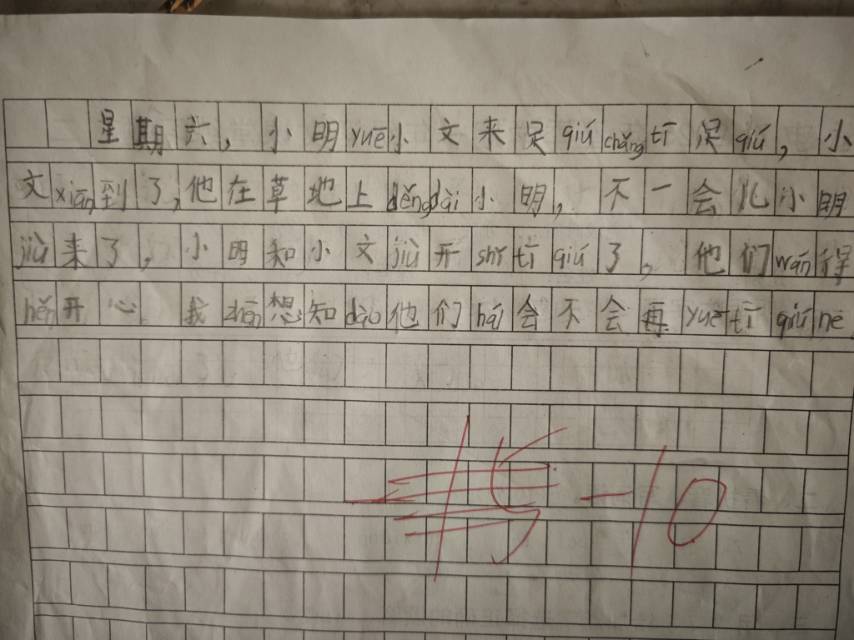 星期六，小明yuē小文来足qiúchǎngtī足qiú，小
文xiān到了，他在草地上děngdài小明，不一会儿小明
jiù来了，小明和小文jiù开shǐtīqiú了，他们wán得
hěn开心。我zhēn想知dào他们hái会不会再yuētīqiúne
-10